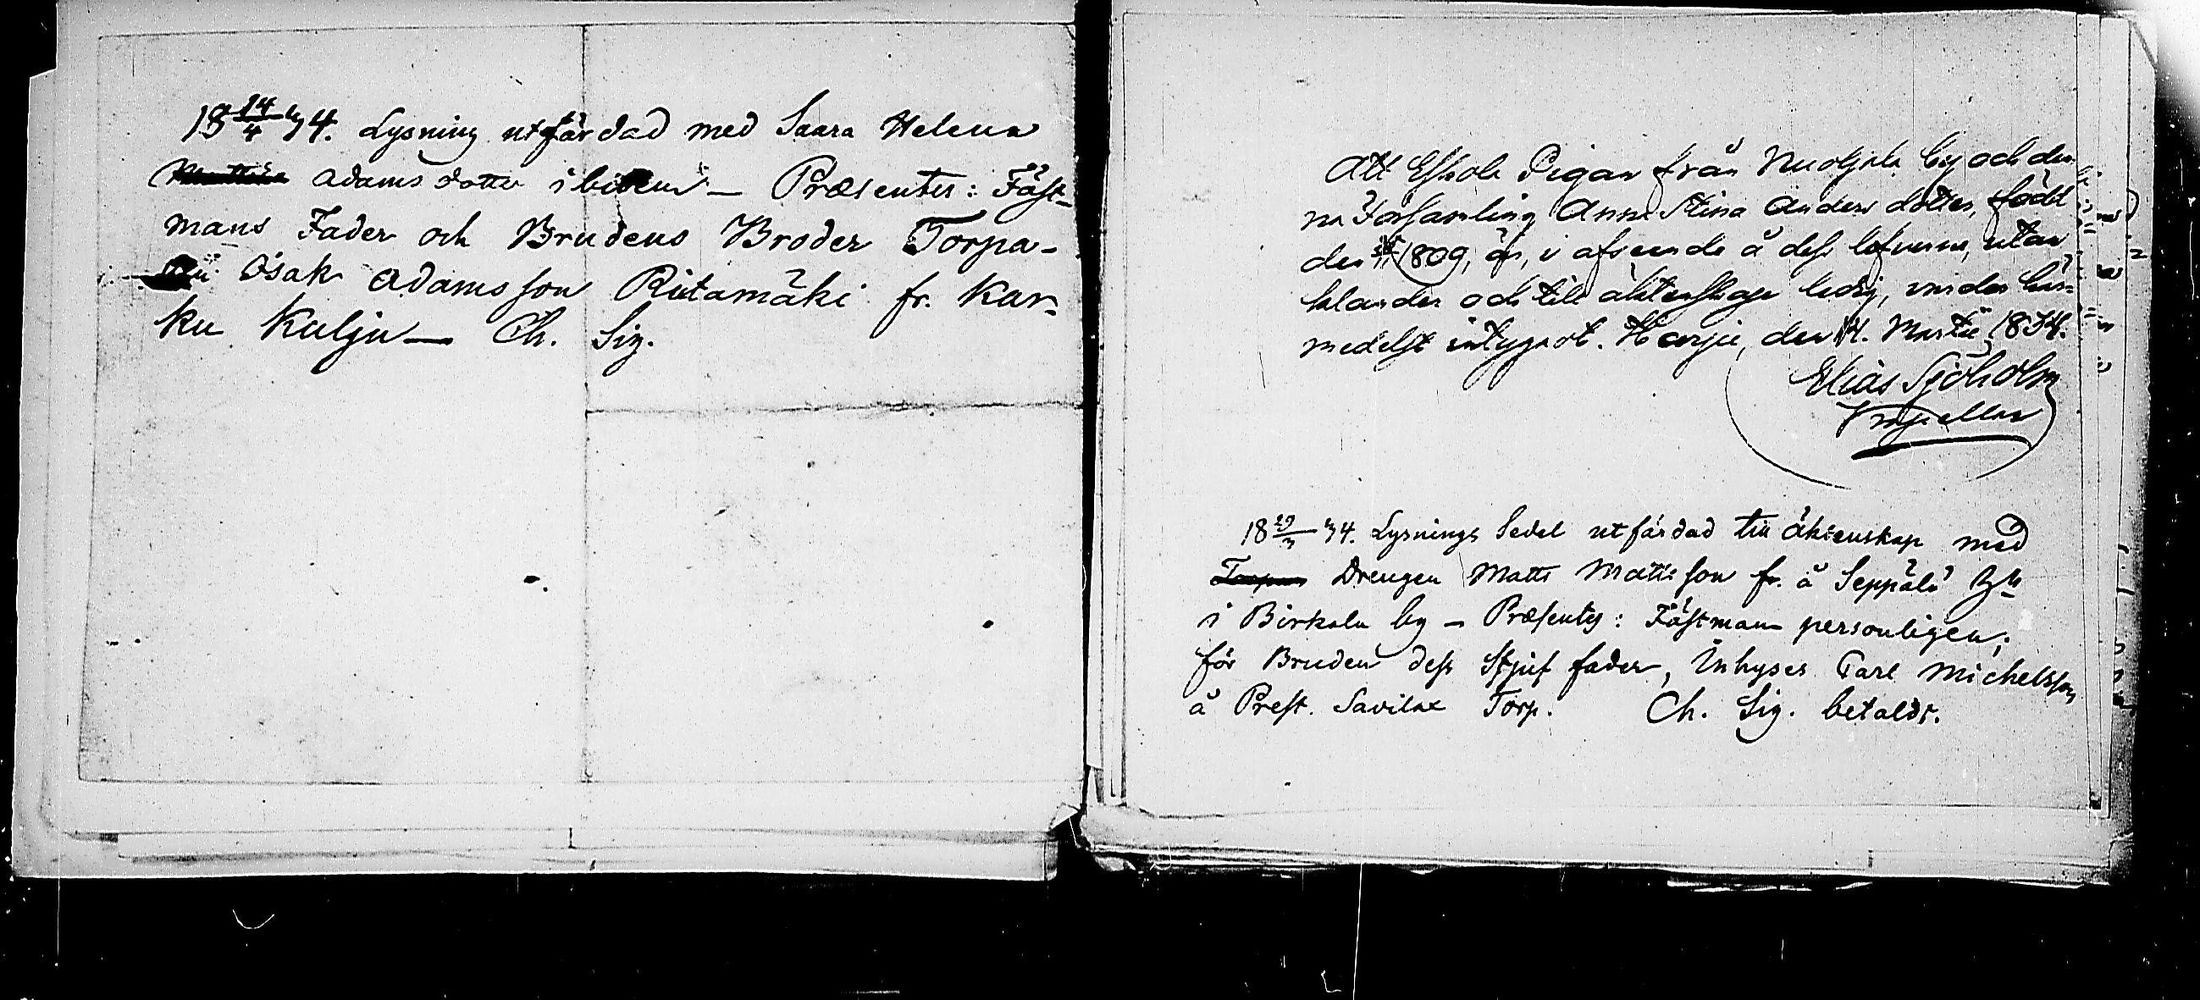 18 14/4 34. Lysning utfärdad med Saara Helena
Adamsdotter ibidem — Præsentes: Fäst-
mans Fader och Brudens Broder Torpa-
Isak Adamsson Riitamäki fr. Kar-
ku Kulju — Ch. Sig.
Att Eskola Pigan från Nuoljala by och den-
na Församling Anna Stina Andersdotter, född
den 1809, är, i afseende å dess lefverne, utan
klander och till äktenskap ledig, varder här-
medelst intygadt. Harju, den 14. Martii 1834.
Elias Sjöholm
Capellan
18 29/3 34. Lysnings Sedel utfärdad till äktenskap med
Drengen Matts Mattsson fr. å Seppälä
i Birkala by — Præsentes: Fästman personligen;
för Bruden dess Stjuffader, Inhyses Carl Michelsson
å Prest. Savilax Torp. Ch. Sig. betaldt.